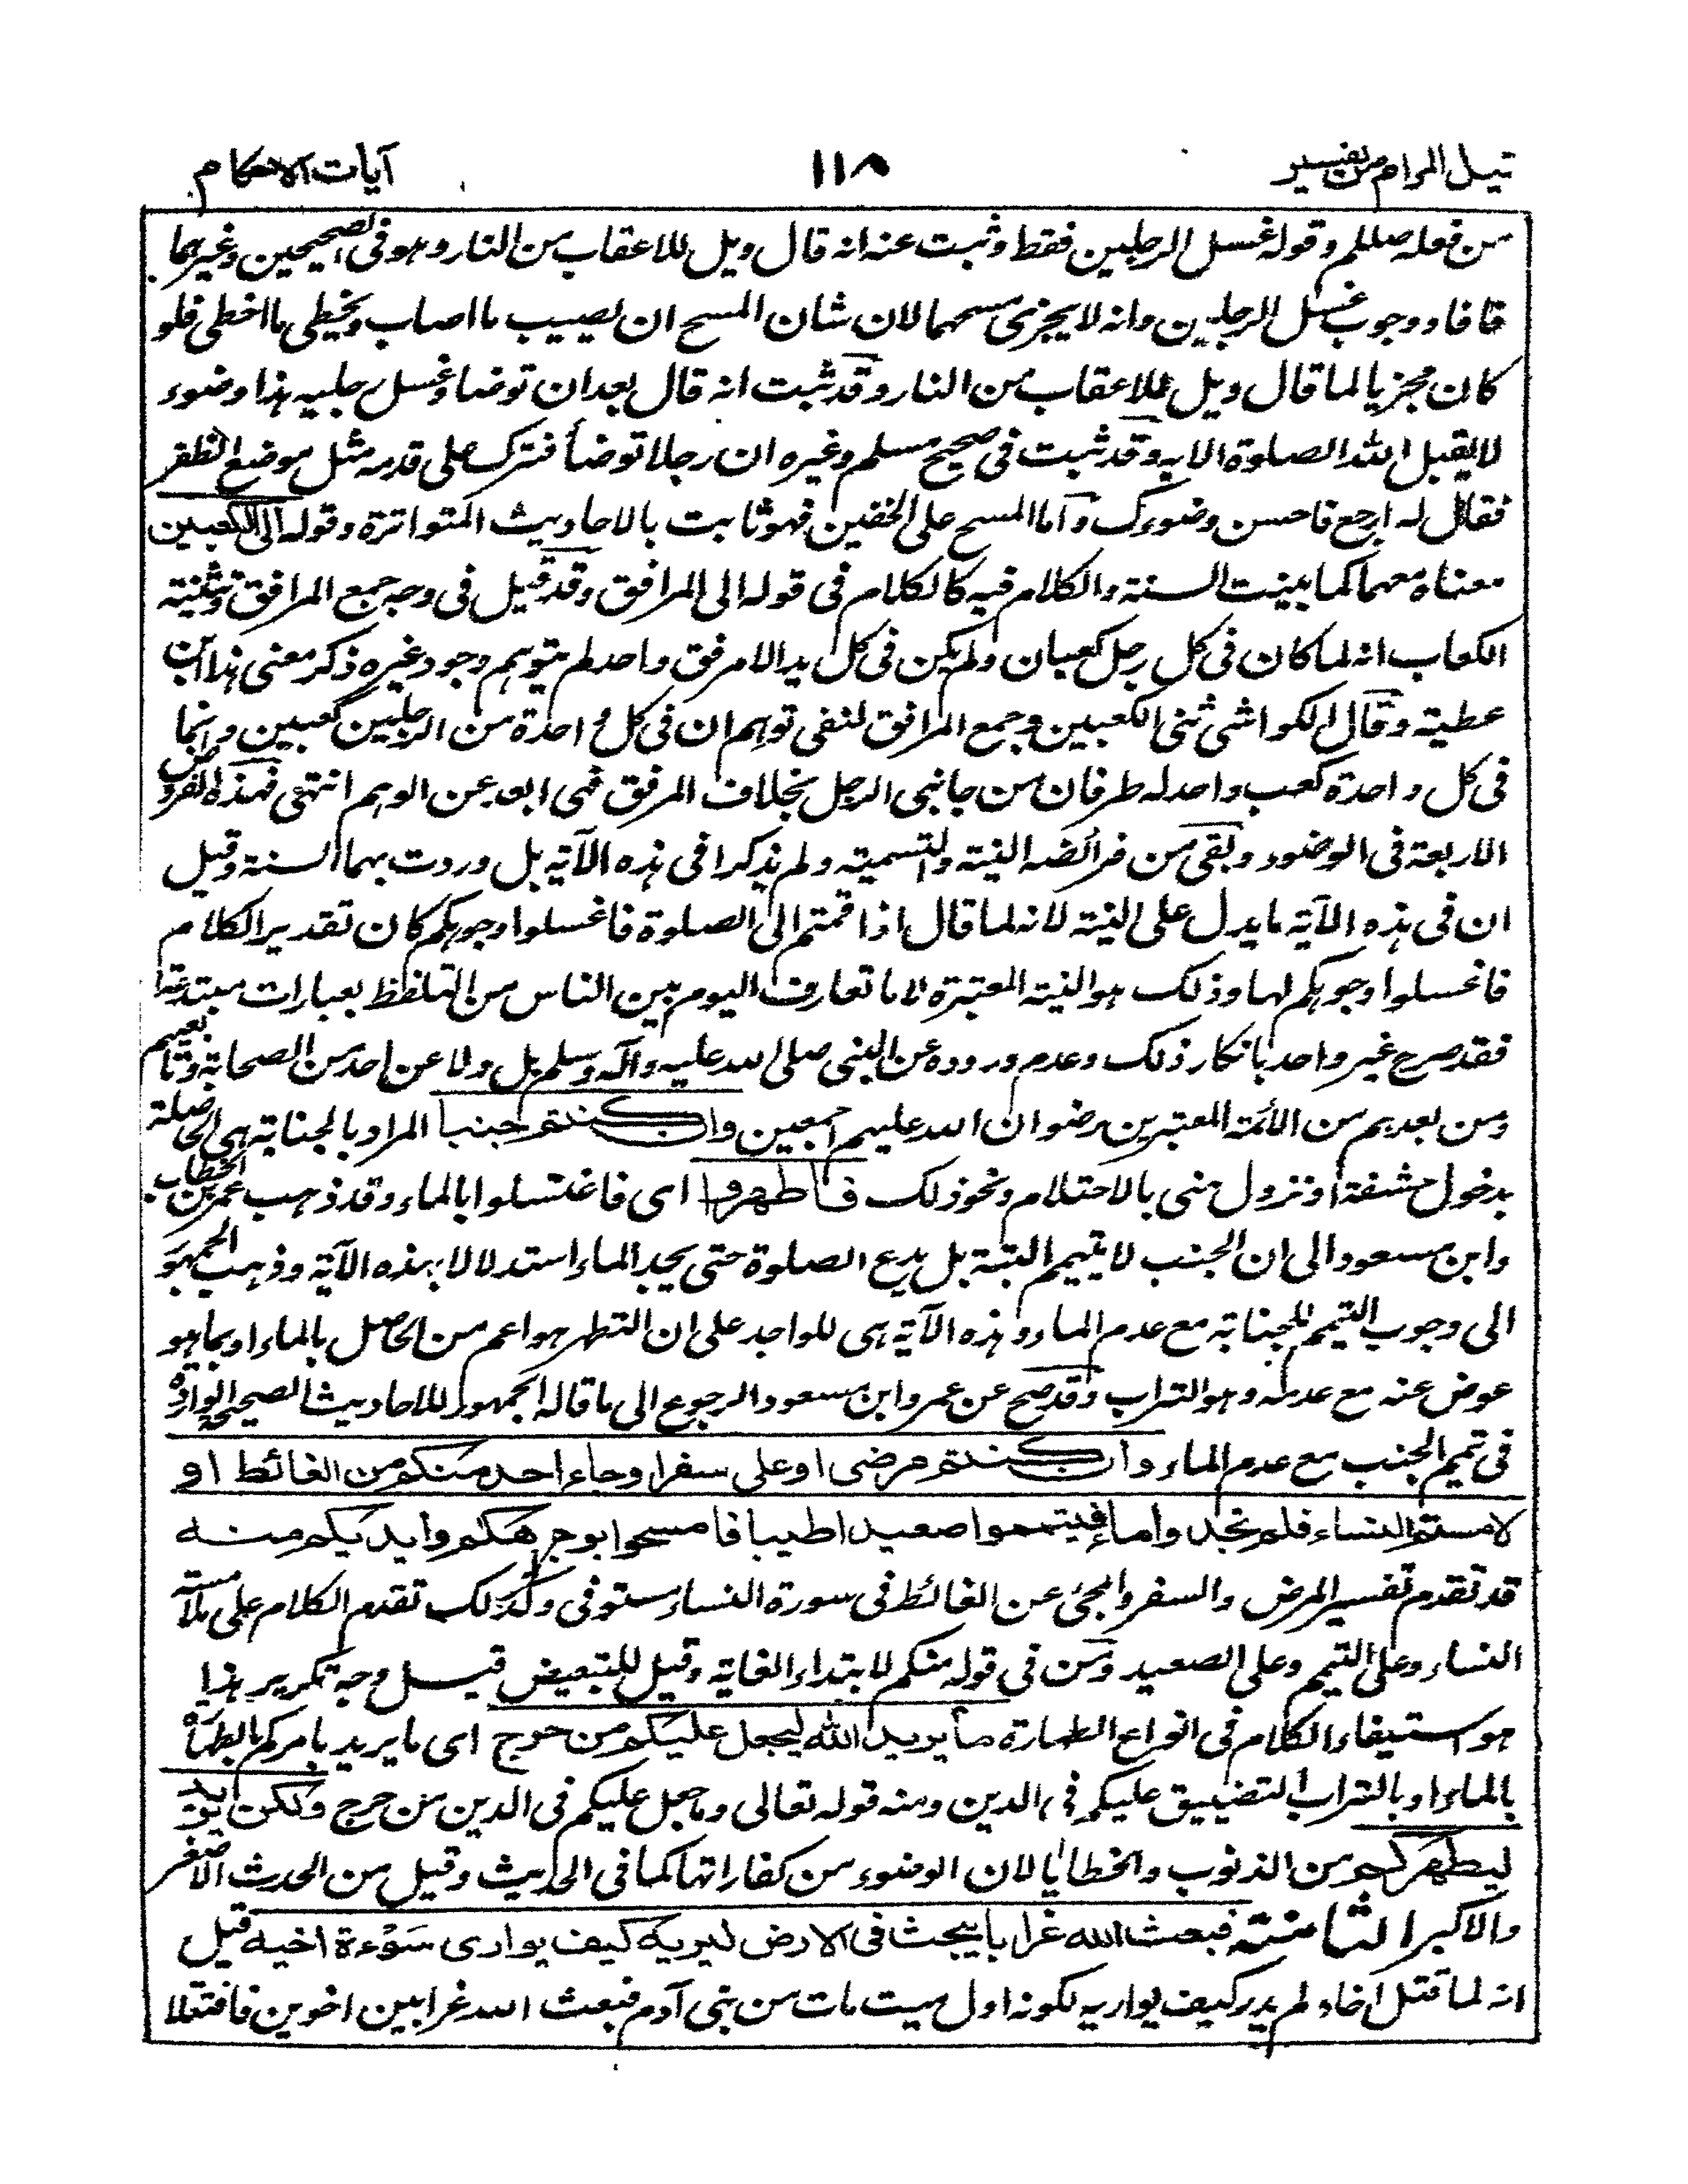 نيل المرام من تفسير ١١٨ آيات الاحكام
من فعله صللم وقوله غسل الرجلين فقط وثبت عنه انه قال ويل للاعقاب من النار وهو فى الصحيحين وغيرهما
فافاد وجوب غسل الرجلين وانه لا يجزى مسحهما لان شان المسح ان يصيب ما اصاب ويخطى ما اخطى فلو
كان مجزيا لما قال ويل للاعقاب من النار وقد ثبت انه قال بعد ان توضا وغسل رجليه هذا وضوء
لا يقبل الله الصلوة الا به وقد ثبت فى صحيح مسلم وغيره ان رجلا توضأ فترك على قدمه مثل موضع الظفر
فقال له ارجع فاحسن وضوءك واما المسح على الخفين فهو ثابت بالاحاديث المتواترة وقوله الى الكعبين
معناه معهما كما بينت السنة والكلام فيه كالكلام فى قوله الى المرافق وقد قيل فى وجه جمع المرافق وتثنية
الكعاب انه لما كان فى كل رجل كعبان ولم يكن فى كل يد الا مرفق واحد لم يتوهم وجود غيره ذكر معنى هذا ابن
عطية وقال الكواشى ثنى الكعبين وجمع المرافق لنفى توهم ان فى كل واحدة من الرجلين كعبين وانما
فى كل واحدة كعب واحد له طرفان من جانبى الرجل بخلاف المرفق فهى ابعد عن الوهم انتهى فهذه الفروض
الاربعة فى الوضوء وبقى من فرائضه النية والتسمية ولم يذكرا فى هذه الآية بل وردت بهما السنة وقيل
ان فى هذه الآية ما يدل على النية لانه لما قال اذا قمتم الى الصلوة فاغسلوا وجوهكم كان تقدير الكلام
فاغسلوا وجوهكم لها وذلك هو النية المعتبرة لا ما تعارف اليوم بين الناس من التلفظ بعبارات مبتدعة
فقد صرح غير واحد بانكار ذلك وعدم وروده عن النبى صلى الله عليه وآله وسلم بل ولا عن احد من الصحابة وتابعيهم
ومن بعدهم من الأئمة المعتبرين رضوان الله عليهم اجمعين وان كنتم جنبا المراد بالجنابة هى الحاصلة
بدخول حشفة او نزول منى بالاحتلام ونحو ذلك فاطهروا اى فاغتسلوا بالماء وقد ذهب عمر بن الخطاب
وابن مسعود الى ان الجنب لا يتيمم البتة بل يدع الصلوة حتى يجد الماء استدلالا بهذه الآية وذهب الجمهور
الى وجوب التيمم للجنابة مع عدم الماء وهذه الآية هى للواجد على ان التطهر هو اعم من الحاصل بالماء او بما هو
عوض عنه مع عدمه وهو التراب وقد صح عن عمر وابن مسعود الرجوع الى ما قاله الجمهور للاحاديث الصحيحة الواردة
فى تيمم الجنب مع عدم الماء وان كنتم مرضى او على سفر او جاء احد منكم من الغائط او
لامستم النساء فلم تجدوا ماء فتيمموا صعيدا طيبا فامسحوا بوجوهكم وايديكم منه
قد تقدم تفسير المرض والسفر والمجئ عن الغائط فى سورة النساء مستوفى وكذلك تقدم الكلام على ملامسة
النساء وعلى التيمم وعلى الصعيد ومن فى قوله منكم لابتداء الغاية وقيل للتبعيض قيل وجه تكرير هذا
هو استيفاء الكلام فى انواع الطهارة ما يريد الله ليجعل عليكم من حرج اى ما يريد بامركم بالطهارة
بالماء او بالتراب التضييق عليكم فى الدين ومنه قوله تعالى وما جعل عليكم فى الدين من حرج ولكن يريد
ليطهركم من الذنوب والخطايا لان الوضوء من كفاراتها كما فى الحديث وقيل من الحدث الاصغر
والاكبر الثامنة فبعث الله غرابا يبحث فى الارض ليريه كيف يوارى سوءة اخيه قيل
انه لما قتل اخاه لم يدر كيف يواريه لكونه اول ميت مات من بنى آدم فبعث الله غرابين اخوين فاقتتلا